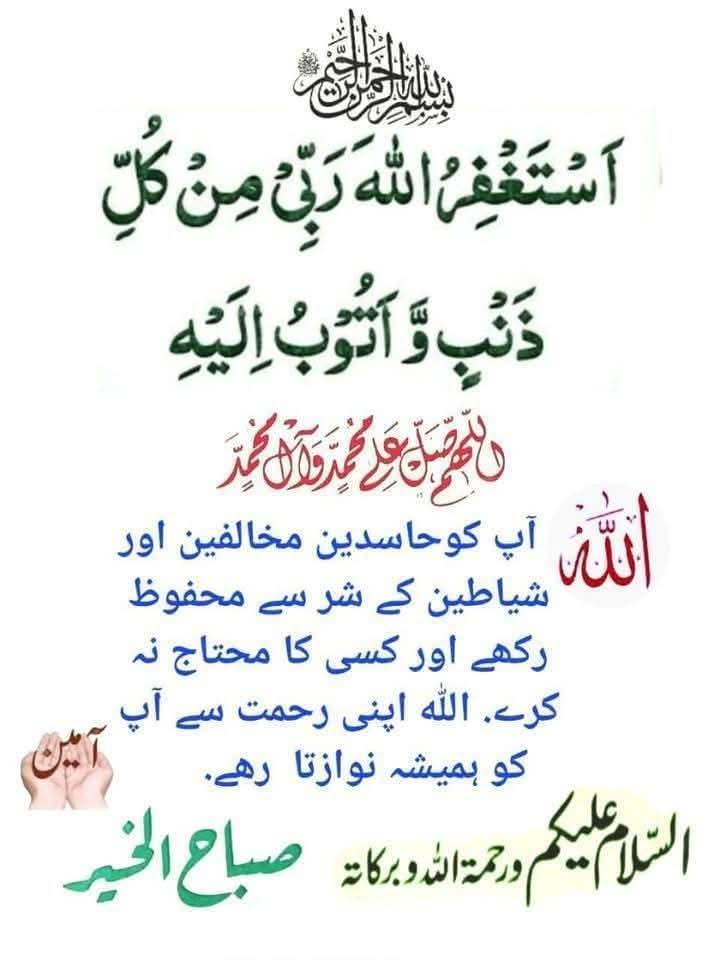 بسم الله الرحمن الرحيم
اَسْتَغْفِرُ اللهَ رَبِّیْ مِنْ کُلِّ
ذَنْبٍ وَّ اَتُوْبُ اِلَیْهِ
اللّٰهم صَلِّ عَلٰی مُحَمَّدٍ وَّآلِ مُحَمَّدٍ
اللّٰهُ آپ کو حاسدین مخالفین اور
شیاطین کے شر سے محفوظ
رکھے اور کسی کا محتاج نہ
کرے. الله اپنی رحمت سے آپ
کو ہمیشہ نوازتا رھے.
آمین
السّلام علیکم ورحمة الله وبرکاتة
صباح الخیر